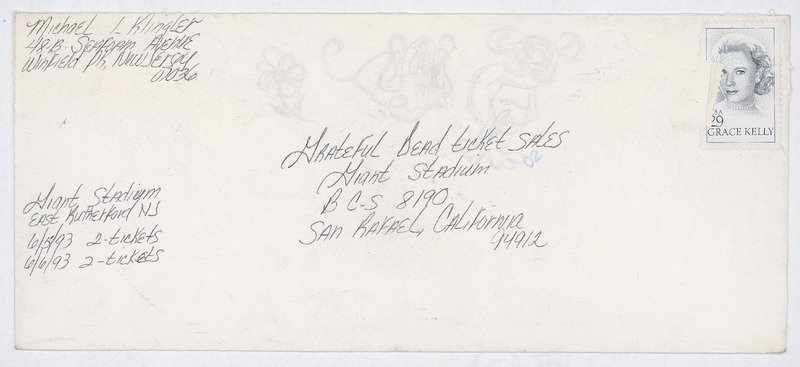 Michael L Klingler
48B Seafoam Avenue
Winfield Pk, New Jersey
07036
USA
29
GRACE KELLY
Grateful Dead ticket sales
Giant Stadium
B C-S 8190
San Rafael, California
94912
02
Giant Stadium
East Rutherford NJ
6/5/93 2-tickets
6/6/93 2-tickets